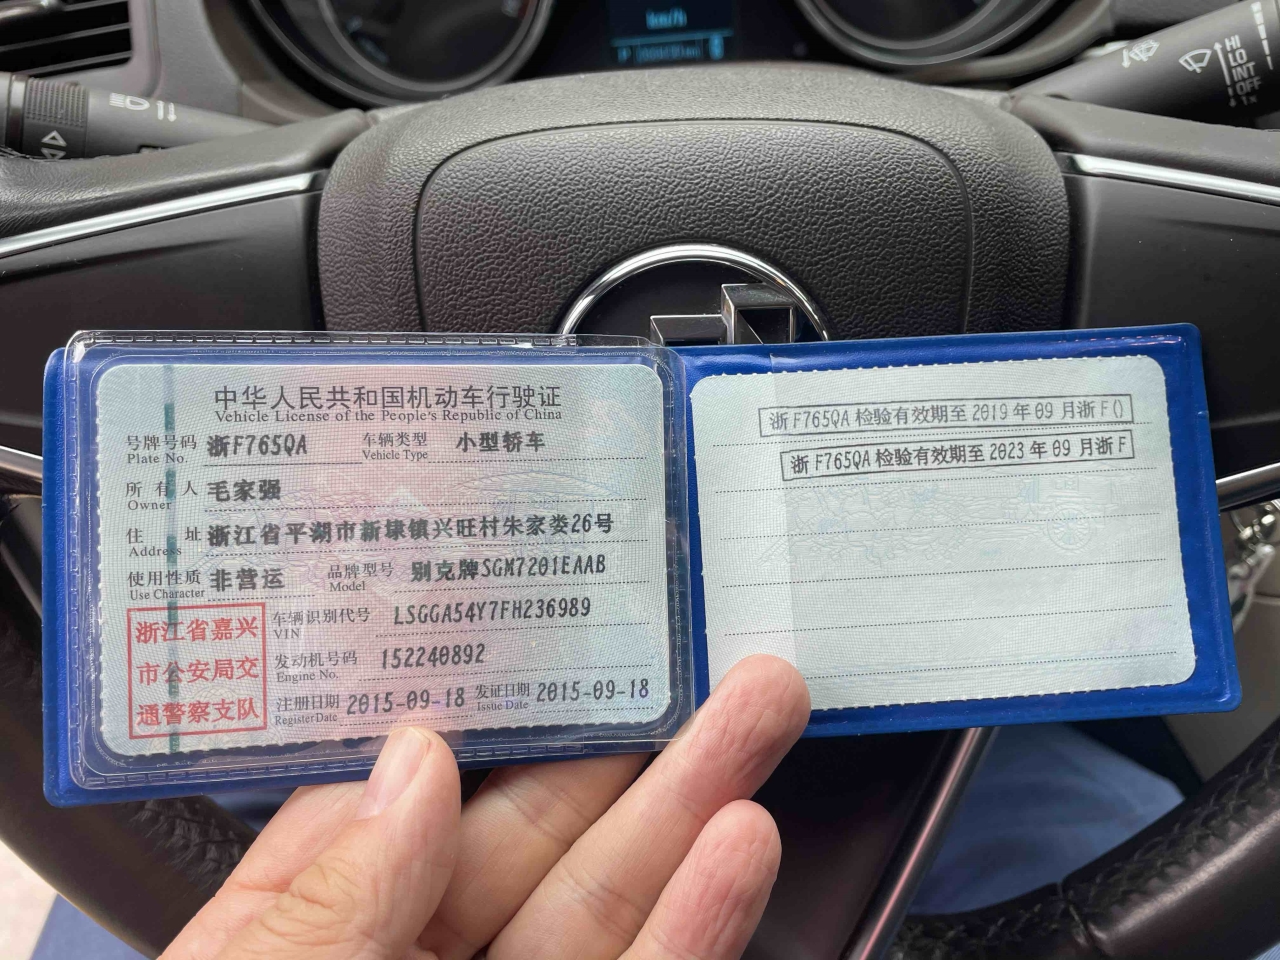 km/h
P
HI
LO
INT
OFF
1x
中华人民共和国机动车行驶证
Vehicle License of the People's Republic of China
号牌号码 浙F765QA 车辆类型 小型轿车
Plate No. Vehicle Type
所有人 毛家强
Owner
住址 浙江省平湖市新埭镇兴旺村朱家娄26号
Address
使用性质 非营运 品牌型号 别克牌SGM7201EAAB
Use Character Model
浙江省嘉兴
市公安局交
通警察支队
车辆识别代号 LSGGA54Y7FH236989
VIN
发动机号码 152240892
Engine No.
注册日期 2015-09-18 发证日期 2015-09-18
Register Date Issue Date
浙F765QA检验有效期至2019年09月浙F()
浙F765QA检验有效期至2023年09月浙F